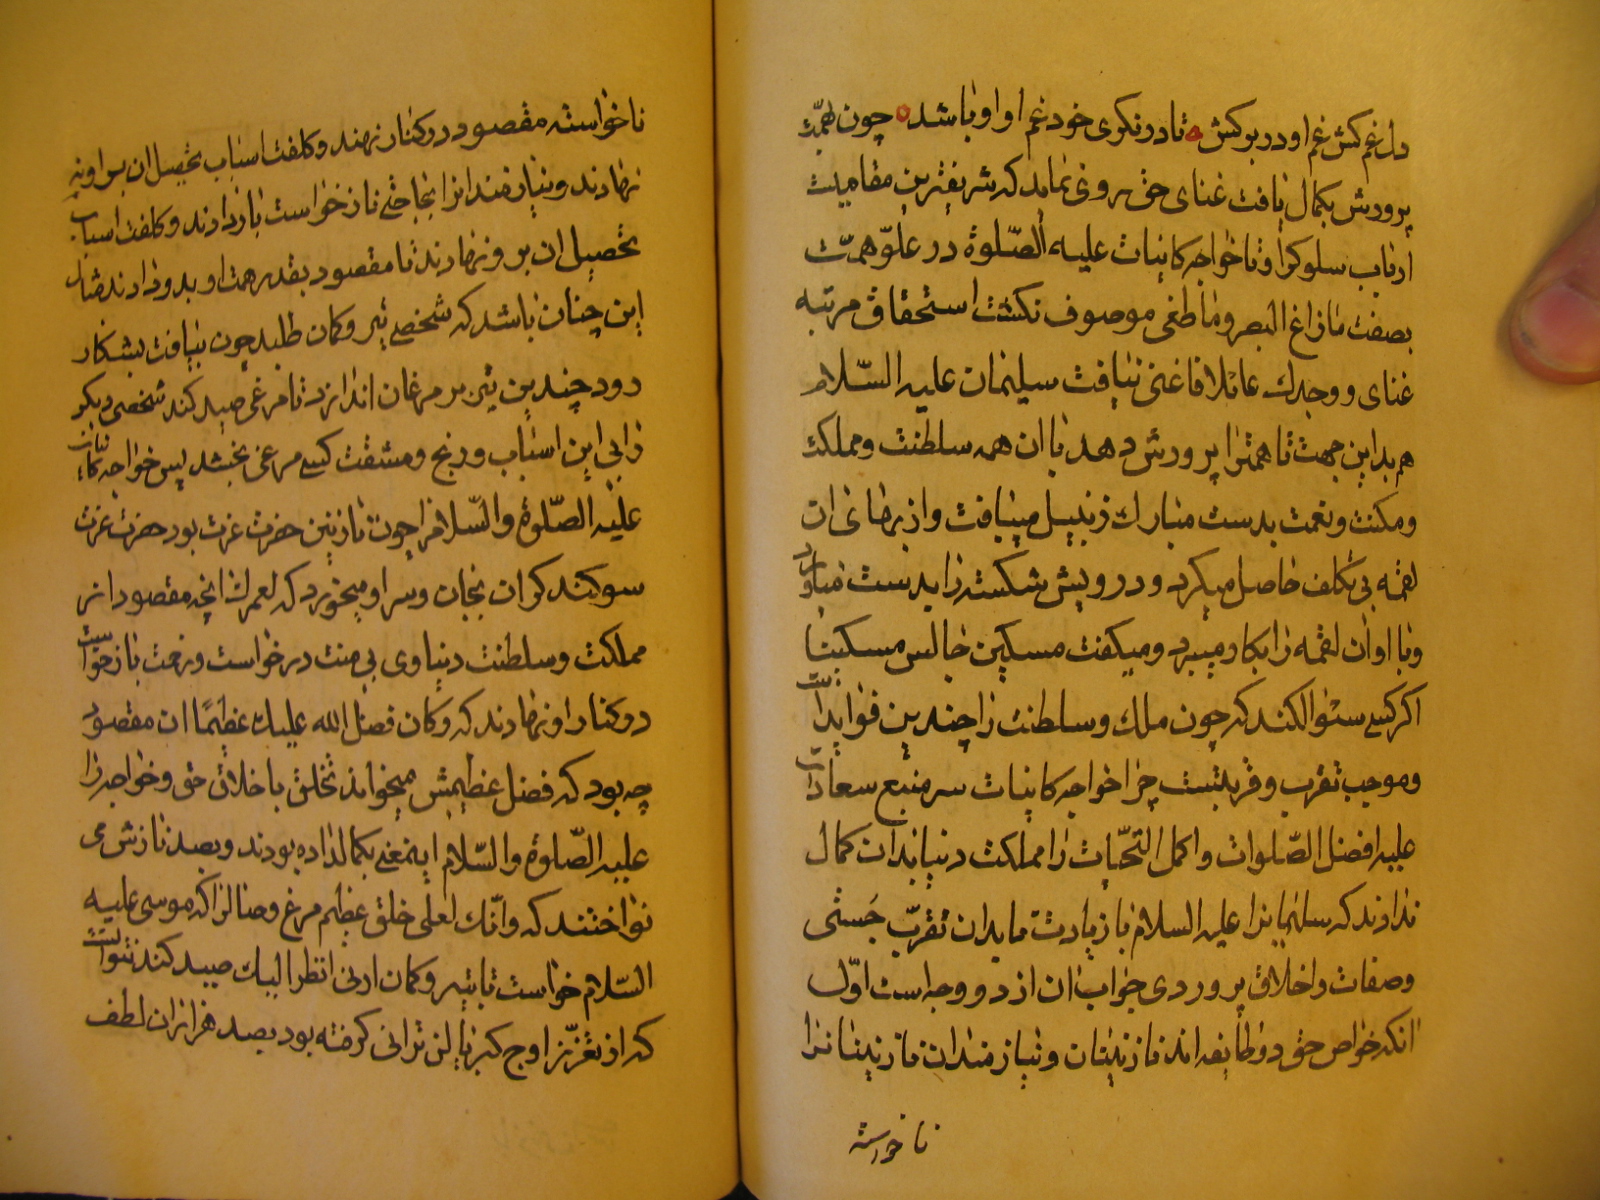 دل غم کش غم او در بر کش تا در نکری خود غم او او باشد چون همّت
پرورش بکمال یافت غنای حق روی نماید که شریفترین مقامیست
ارباب سلوک را و تا خواجه کاینات علیه الصّلوة در علوّ همّت
بصفت ما زاغ البصر و ما طغی موصوف نکشت استحقاق مرتبه
غنای و وجدك عائلا فاغنی نیافت سلیمان علیه السّلام
هم بدین جهت تا همترا پرورش دهد با ان همه سلطنت و مملکت
و مکنت و نعمت بدست مبارك زنبیل میبافت و از بهای ان
لقمه بی تکلف حاصل میکرد و درویش شکسته را بدست میاورد
و با او ان لقمه را بکار میبرد و میکفت مسکین جالس مسکینا
اکر کسی سئوال کند که چون ملك و سلطنت را چندین فوایداست
و موجب تقرب و قربتست چرا خواجه کاینات سر منبع سعادات
علیه افضل الصّلوات و اکمل التحیّات را مملکت دنیا بدان کمال
ندادند که سلیمانرا علیه السلام با زیادت ما بدان تقرّب جستی
و صفات و اخلاق پروردی جواب ان از دو وجه است اوّل
انکه خواص حق دو طایفه اند نازنینان و نیازمندان نازنینانرا
ناخواسته
ناخواسته مقصود در کنار نهند و کلفت اسباب تحصیل ان بر او نه
نهادند و نیازمندانرا بجای ناز خواست باز دادند و کلفت اسباب
تحصیل ان برو نهادند تا مقصود بقدر همت او بدو دادند مثال
این چنان باشد که شخصی تیر و کمان طلبد چون بیافت بشکار
رود چندین تیر بر مرغان اندازد تا مرغی صید کند شخصی دیکر
را بی این اسباب و رنج و مشقت کسی مرغی بخشد پس خواجه کاینات
علیه الصّلوة والسّلام را چون نازنین حضرت عزت بود حضرت عزت
سوکند کران بجان و سر او میخورد که لعمرك انچه مقصود از
مملکت و سلطنت دنیاوی بی منت درخواست و زحمت بازخواست
در کنار او نهادند که و کان فضل الله علیك عظیمًا ان مقصود
چه بود که فضل عظیمش میخواند تخلق باخلاق حق و خواجه را
علیه الصّلوة والسّلام اینمعنی بکمال داده بودند و بصد نازش می
نواختند که وانّك لعلی خلق عظیم مرغ وصال را که موسی علیه
السّلام خواست تا بتیر و کمان ارنی انظر الیك صید کند نتوانست
که از تعزّز اوج کبریای لن ترانی کرفته بود بصد هزاران لطف